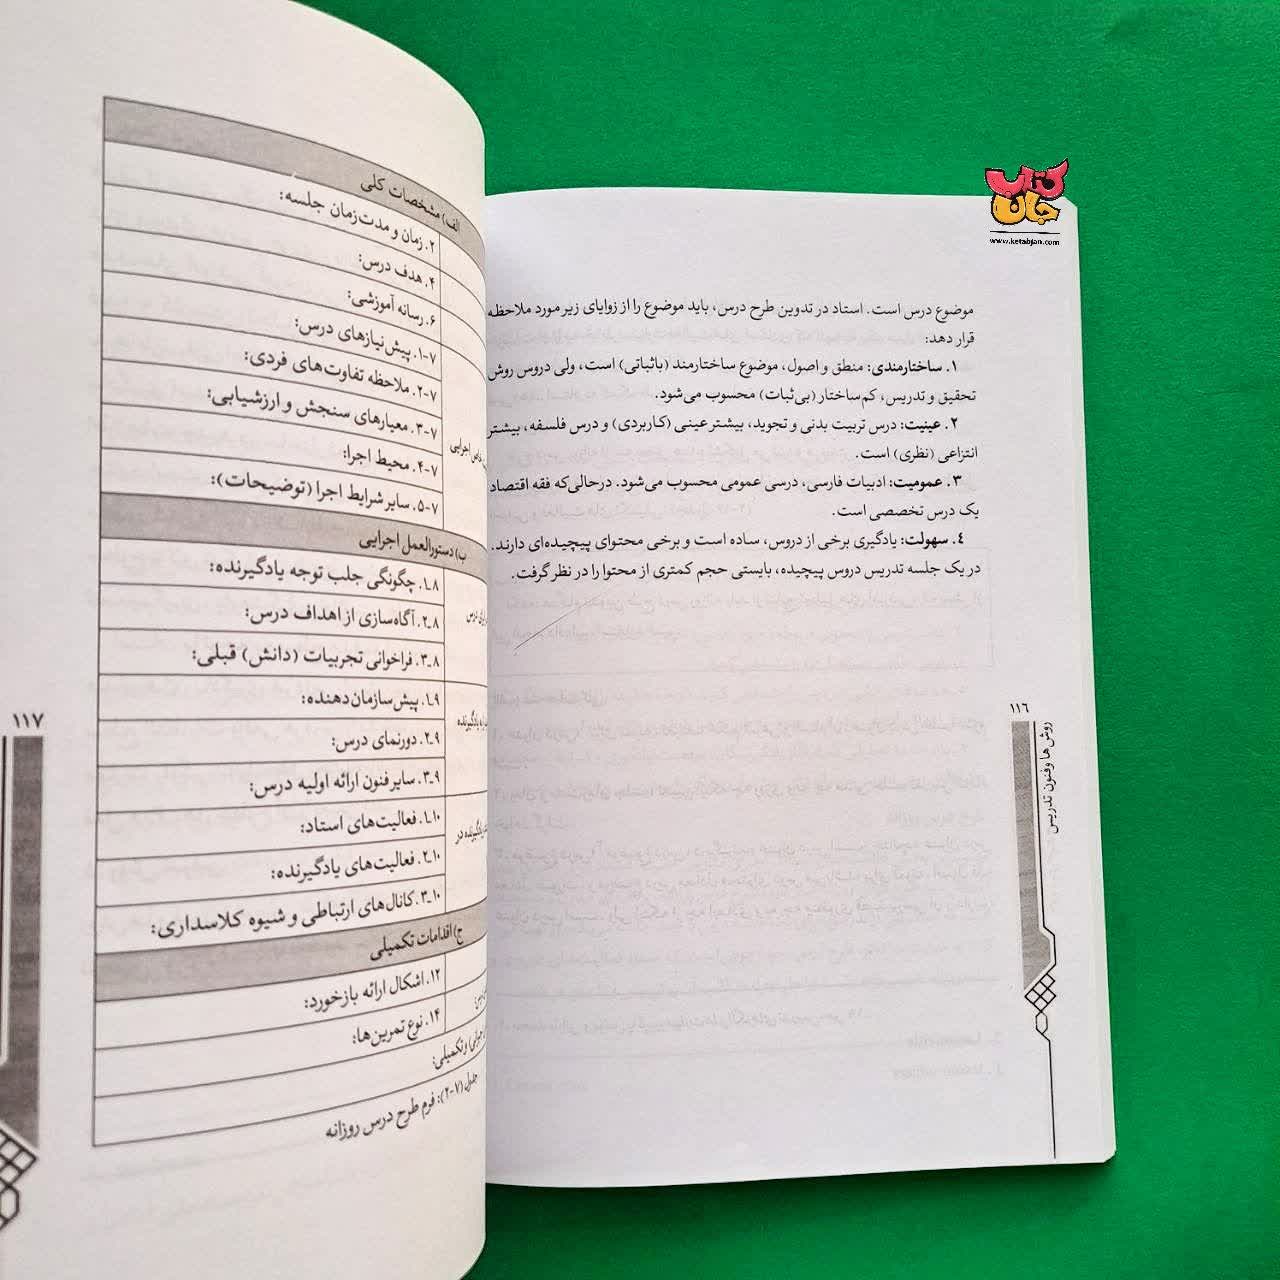 کتاب
جان
www.ketabjan.com
موضوع درس است. استاد در تدوین طرح درس، باید موضوع را از زوایای زیر مورد ملاحظه
قرار دهد:
۱. ساختارمندی: منطق و اصول، موضوع ساختارمند (باثباتی) است، ولی دروس روش
تحقیق و تدریس، کم‌ساختار (بی‌ثبات) محسوب می‌شود.
۲. عینیت: درس تربیت بدنی و تجوید، بیشتر عینی (کاربردی) و درس فلسفه، بیشتر
انتزاعی (نظری) است.
۳. عمومیت: ادبیات فارسی، درسی عمومی محسوب می‌شود. درحالی‌که فقه اقتصاد
یک درس تخصصی است.
٤. سهولت: یادگیری برخی از دروس، ساده است و برخی محتوای پیچیده‌ای دارند.
در یک جلسه تدریس دروس پیچیده، بایستی حجم کمتری از محتوا را در نظر گرفت.
۱۱٦
روش ها و فنون تدریس
الف) مشخصات کلی
۲. زمان و مدت‌زمان جلسه:
۴. هدف درس:
۶. رسانه آموزشی:
۷-۱. پیش‌نیازهای درس:
۷-۲. ملاحظه تفاوت‌های فردی:
۷-۳. معیارهای سنجش و ارزشیابی:
۷-۴. محیط اجرا:
۷-۵. سایر شرایط اجرا (توضیحات):
اجرایی
ب) دستورالعمل اجرایی
۸ـ۱. چگونگی جلب توجه یادگیرنده:
۸ـ۲. آگاه‌سازی از اهداف درس:
۸ـ۳. فراخوانی تجربیات (دانش) قبلی:
درس
۹ـ۱. پیش‌سازمان‌دهنده:
۹ـ۲. دورنمای درس:
۹ـ۳. سایر فنون ارائه اولیه درس:
یادگیرنده
۱۰ـ۱. فعالیت‌های استاد:
۱۰ـ۲. فعالیت‌های یادگیرنده:
۱۰ـ۳. کانال‌های ارتباطی و شیوه کلاسداری:
یادگیرنده در
ج) اقدامات تکمیلی
۱۲. اشکال ارائه بازخورد:
۱۴. نوع تمرین‌ها:
و تکمیلی:
جدول (۷-۲): فرم طرح درس روزانه
۱۱۷